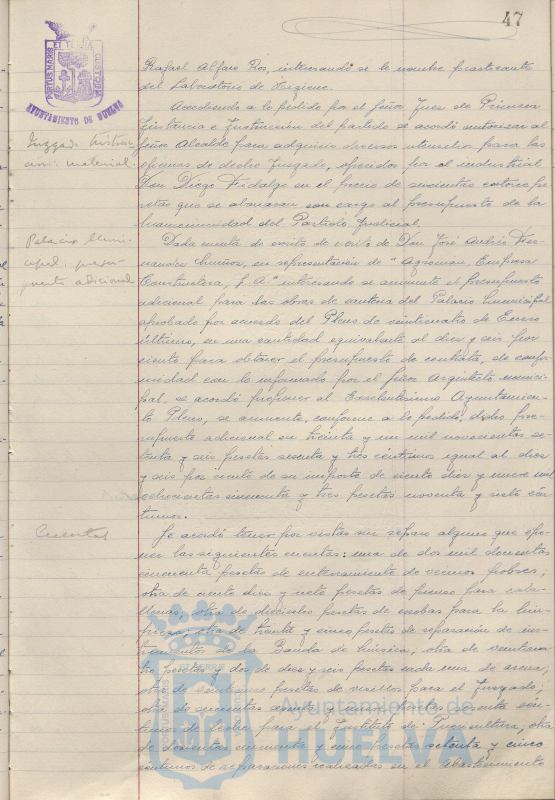 47
PORTUS MARIS ET TERRÆ CUSTODIA
AYUNTAMIENTO DE HUELVA
Rafael Alfaro Ros, interesando se le nombre practicante
del Laboratorio de Higiene.
Juzgado Instruc-
ción: material.
Accediendo a lo pedido por el Señor Juez de Primera
Instancia e Instrucción del partido se acordó autorizar al
Señor Alcalde para adquirir diversos utensilios para las
oficinas de dicho Juzgado, ofrecidos por el industrial
Don Diego Hidalgo en el precio de seiscientas catorce pe-
setas que se abonarán con cargo al presupuesto de la
Mancomunidad del Partido Judicial.
Palacio Muni-
cipal: presu-
puesto adicional
Dada cuenta de escrito de Don José Andrés Her-
nández Muños, en representación de "Agroman, Empresa
Constructora, S.A." interesando se aumente el presupuesto
adicional para las obras de cantería del Palacio Municipal
aprobado por acuerdo del Pleno de veinticuatro de Enero
último, en una cantidad equivalente al diez y seis por
ciento para obtener el presupuesto de contrata, de confor-
midad con lo informado por el Señor Arquitecto munici-
pal, se acordó proponer al Excelentísimo Ayuntamien-
to Pleno, se aumente, conforme a lo pedido, dicho pre-
supuesto adicional en treinta y un mil novecientas se-
tenta y seis pesetas sesenta y tres céntimos igual al diez
y seis por ciento de su importe de ciento diez y nueve mil
ochocientas cincuenta y tres pesetas noventa y siete cén-
timos.
Cuentas
Se acordó tener por vistas sin reparo alguno que opo-
ner las siguientes cuentas: una de dos mil doscientas
cincuenta pesetas de enterramiento de vecinos pobres;
otra de ciento diez y siete pesetas de pienso para caba-
llerías; otra de dieciocho pesetas de escobas para la lim-
pieza; otra de treinta y cinco pesetas de reparación de ins-
trumentos de la Banda de Música; otra de veinticua-
tro pesetas y dos de diez y seis pesetas cada una de arena;
otra de veintiuna pesetas de visillos para el Juzgado;
otra de seiscientas y pesetas cin-
timos de leche para el Instituto de Puericultura; otra
de doscientas cincuenta y cinco pesetas setenta y cinco
céntimos de reparaciones realizadas en el abastecimiento
Ayuntamiento de
HUELVA